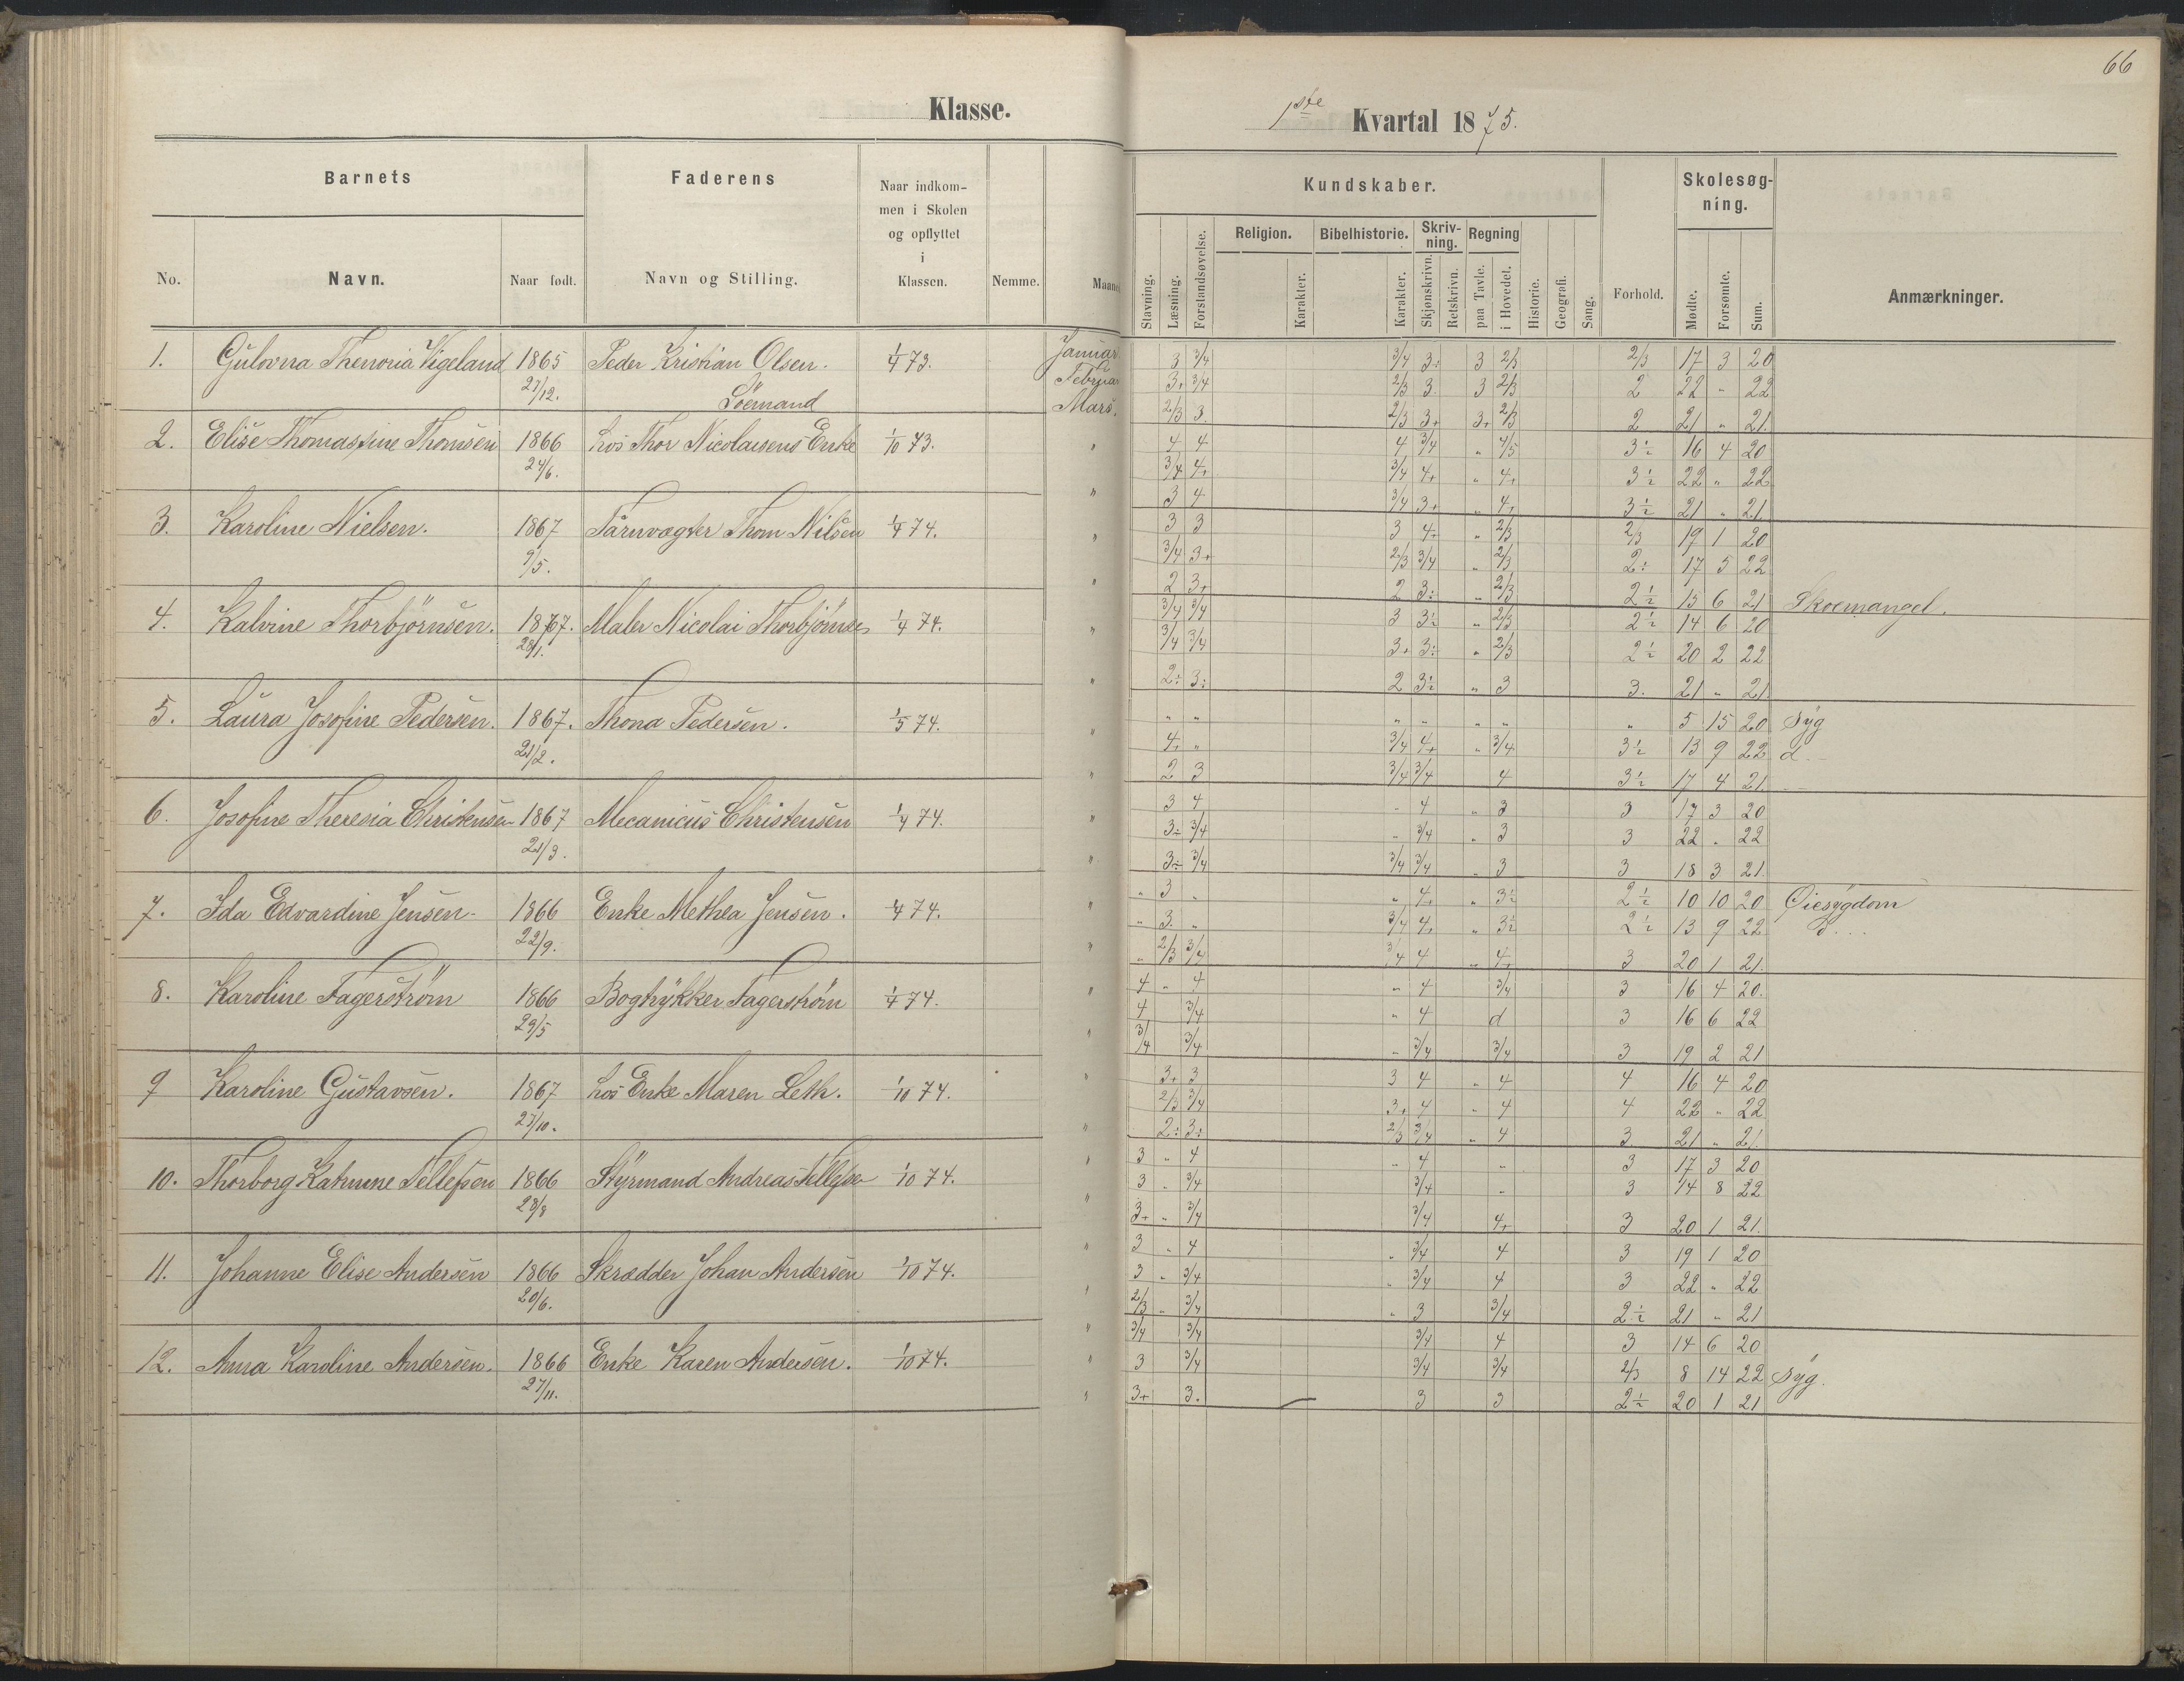 66
Klasse.
1ste Kvartal 1875.
Barnets
Faderens
Naar indkommen i Skolen og opflyttet i Klassen.
Nemme.
Kundskaber.
Skolesøgning.
No.
Navn.
Naar født.
Navn og Stilling.
Stavning.
Læsning.
Forstandsøvelse.
Religion.
Karakter.
Bibelhistorie.
Karakter.
Skrivning.
Skjønskrivn.
Retskrivn.
Regning
paa Tavle.
i Hovedet.
Historie.
Geografi.
Sang.
Forhold.
Mødte.
Forsømte.
Sum.
Anmærkninger.
1. Gulovna Thenoria Vigeland 1865 27/12. Peder Kristian Olsen. Söemand 1/4 73.
Januar 3 3/4 3/4 3+ 3 2/3 2/3 17 3 20
Februa 3+ 3/4 2/3 3 3 2/3 2 22 " 22
Mars. 2/3 3. 2/3 3+ 3+ 2/3 2 21 " 21.
2. Elise Thomassine Thomsen 1866 24/6. hos Thor Nicolaisens Enke 1/10 73.
" 4 4 4 3/4 " 4/5 3÷ 16 4 20
3/4 4+ 3/4 4+ " 4+ 3÷ 22 " 22
" 3 4 3/4 3+ " 4+ 3÷ 21 " 21
3. Karoline Nielsen. 1867 9/5. Tårnvægter Thom Nilsen 1/4 74.
" 3 3 3 4+ " 2/3 2/3 19 1 20
3/4 3+ 2/3 3/4 " 2/3 2÷ 17 5 22
" 2 3+ 2 3÷ " 2/3 2÷ 15 6 21 Skoemangel.
4. Kalvine Thorbjörnsen. 1867. 28/1. Maler Nicolai Thorbjörnse 1/4 74.
" 3/4 3/4 3 3÷ " 2/3 2÷ 14 6 20
3/4 3/4 3+ 3÷ " 2/3 2÷ 20 2 22
" 2÷ 3÷ 2 3÷ " 3 3. 21 " 21
5. Laura Josofine Pedersen. 1867. 21/2. Thona Pedersen. 1/5 74.
" " " " " " " " 5 15 20 Syg
4+ " 3/4 4+ " 3/4 3÷ 13 9 22 d.
" 2 3 3/4 3/4 4 3÷ 17 4 21.
6. Josofine Theresia Christensen 1867 21/3. Mecanicus Christensen 1/4 74.
" 3 4 " 4 " 3 3 17 3 20
3÷ 3/4 " 3/4 " 3 3 22 " 22
" 3÷ 3/4 3/4 3/4 " 3 3 18 3 21.
7. Ida Edvardine Jensen 1866 22/9. Enke Methea Jensen. 1/4 74.
" " 3 " " 4+ " 3÷ 2÷ 10 10 20 Øiesygdom
" 3. " 3/4 4+ " 3÷ 2÷ 13 9 22 d...
" " 2/3 3/4 3/4 4 " 4+ 3 20 1 21.
8. Karoline Fagerström 1866 29/5 Bogtrykker Fagerström 1/4 74.
" 4 " 4 " 4 3/4 3 16 4 20.
4 3/4 " 4 d 3 16 6 22
" 3/4 3/4 " 3/4 3/4 3 19 2 21
9 Karoline Gustavsen. 1867 27/10. hos Enke Maren Leth. 1/10 74.
" 3+ 3 3 4 " 4 4 16 4 20
2/3 3/4 3+ 4 " 4 4 22 " 22
" 2÷ 3÷ 2/3 3/4 " 4 3 21 " 21
10. Thorborg Katrine Tellefsen 1866 28/8 Styrmand Andreas Tellefse 1/10 74.
" 3 " 4 " 4 " 3 17 3 20
3 " 3/4 3/4 " 3 14 8 22
" 3+ " 3/4 3/4 4+ 3 20 1 21.
11. Johanne Elise Andersen 1866 20/6. Skrædder Johan Andersen 1/10 74.
" 3 " 4 " 3/4 4 3 19 1 20
3 " 3/4 " 3/4 4 3 22 " 22
" 2/3 " 3/4 " 3 3/4 2÷ 21 " 21
12. Anna Karoline Andersen. 1866 27/11. Enke Karen Andersen. 1/10 74.
" 3/4 3/4 3/4 4 3 14 6 20
" 3 3/4 3/4 3/4 2/3 8 14 22 Syg.
" 3+ 3. 3 3 2÷ 20 1 21